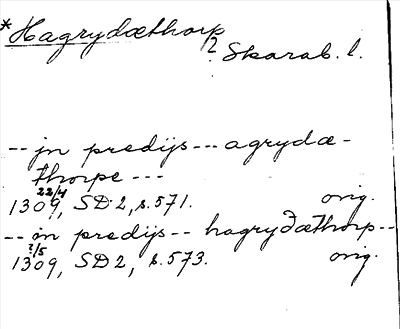 *Hagrydæthorp
? Skarab. l.
-- jn predijs --- agrydæ-
thorpe ---
22/4
1309, SD 2, s. 571. orig.
-- in predijs -- hagryđæthorp --
?/5
1309, SD 2, s. 573. orig.